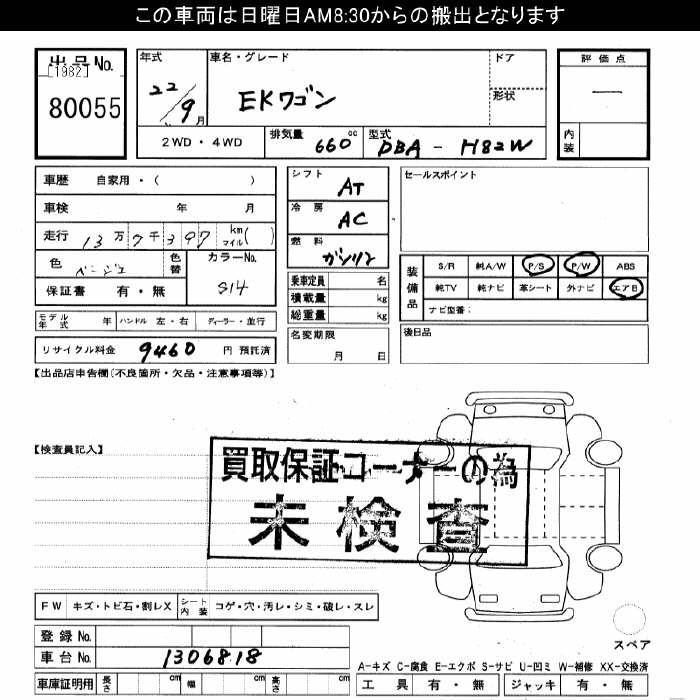 この車両は日曜日AM8:30からの搬出となります
出品No.
[1982]
80055
年式
22/9月
車名・グレード
EKワゴン
ドア
形状
評価点
―
内装
2WD・4WD
排気量
660cc
型式
DBA - H82W
車歴 自家用・( )
車検 年 月
走行 13万7千397 km マイル( )
色 ベージュ 色替
カラーNo.
S14
保証書 有・無
シフト
AT
冷房
AC
燃料
ガソリン
乗車定員 名
積載量 kg
総重量 kg
セールスポイント
装備品
S/R 純A/W P/S P/W ABS
純TV 純ナビ 革シート 外ナビ エアB
ナビ型番:
モデル年式 年 ハンドル 左・右 ディーラー・並行
名変期限
月 日
後日品
リサイクル料金 9460 円 預託済
【出品店申告欄(不良箇所・欠品・注意事項等)】
【検査員記入】
買取保証コーナーの為
未検査
FW キズ・トビ石・割レX シート内装 コゲ・穴・汚レ・シミ・破レ・スレ
スペア
登録No.
車台No. 1306818
A-キズ C-腐食 E-エクボ S-サビ U-凹ミ W-補修 XX-交換済
車庫証明用 長さ cm 幅 cm 高さ cm
工具 有・無 ジャッキ 有・無